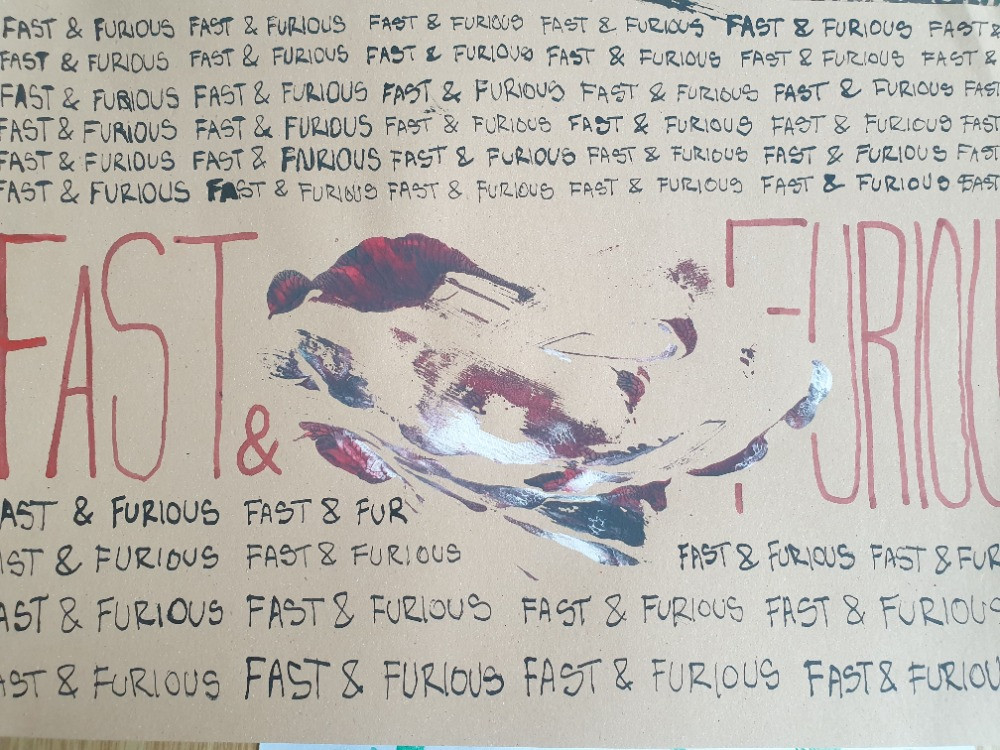 FAST & FURIOUS FAST & FURIOUS FAST & FURIOUS FAST & FURIOUS FAST & FURIOUS FAST &
FAST & FURIOUS FAST & FURIOUS FAST & FURIOUS FAST & FURIOUS FAST & FURIOUS FAST &
FAST & FURIOUS FAST & FURIOUS FAST & FURIOUS FAST & FURIOUS FAST & FURIOUS FAST
FAST & FURIOUS FAST & FURIOUS FAST & FURIOUS FAST & FURIOUS FAST & FURIOUS FAST
FAST & FURIOUS FAST & FNRIOUS FAST & FURIOUS FAST & FURIOUS FAST & FURIOUS FAST
FAST & FURIOUS FAST & FURIOUS FAST & FURIOUS FAST & FURIOUS FAST & FURIOUS FAST
FAST & FURIOU
AST & FURIOUS FAST & FUR
AST & FURIOUS FAST & FURIOUS FAST & FURIOUS FAST & FUR
AST & FURIOUS FAST & FURIOUS FAST & FURIOUS FAST & FURIOUS
AST & FURIOUS FAST & FURIOUS FAST & FURIOUS FAST & FURIOU